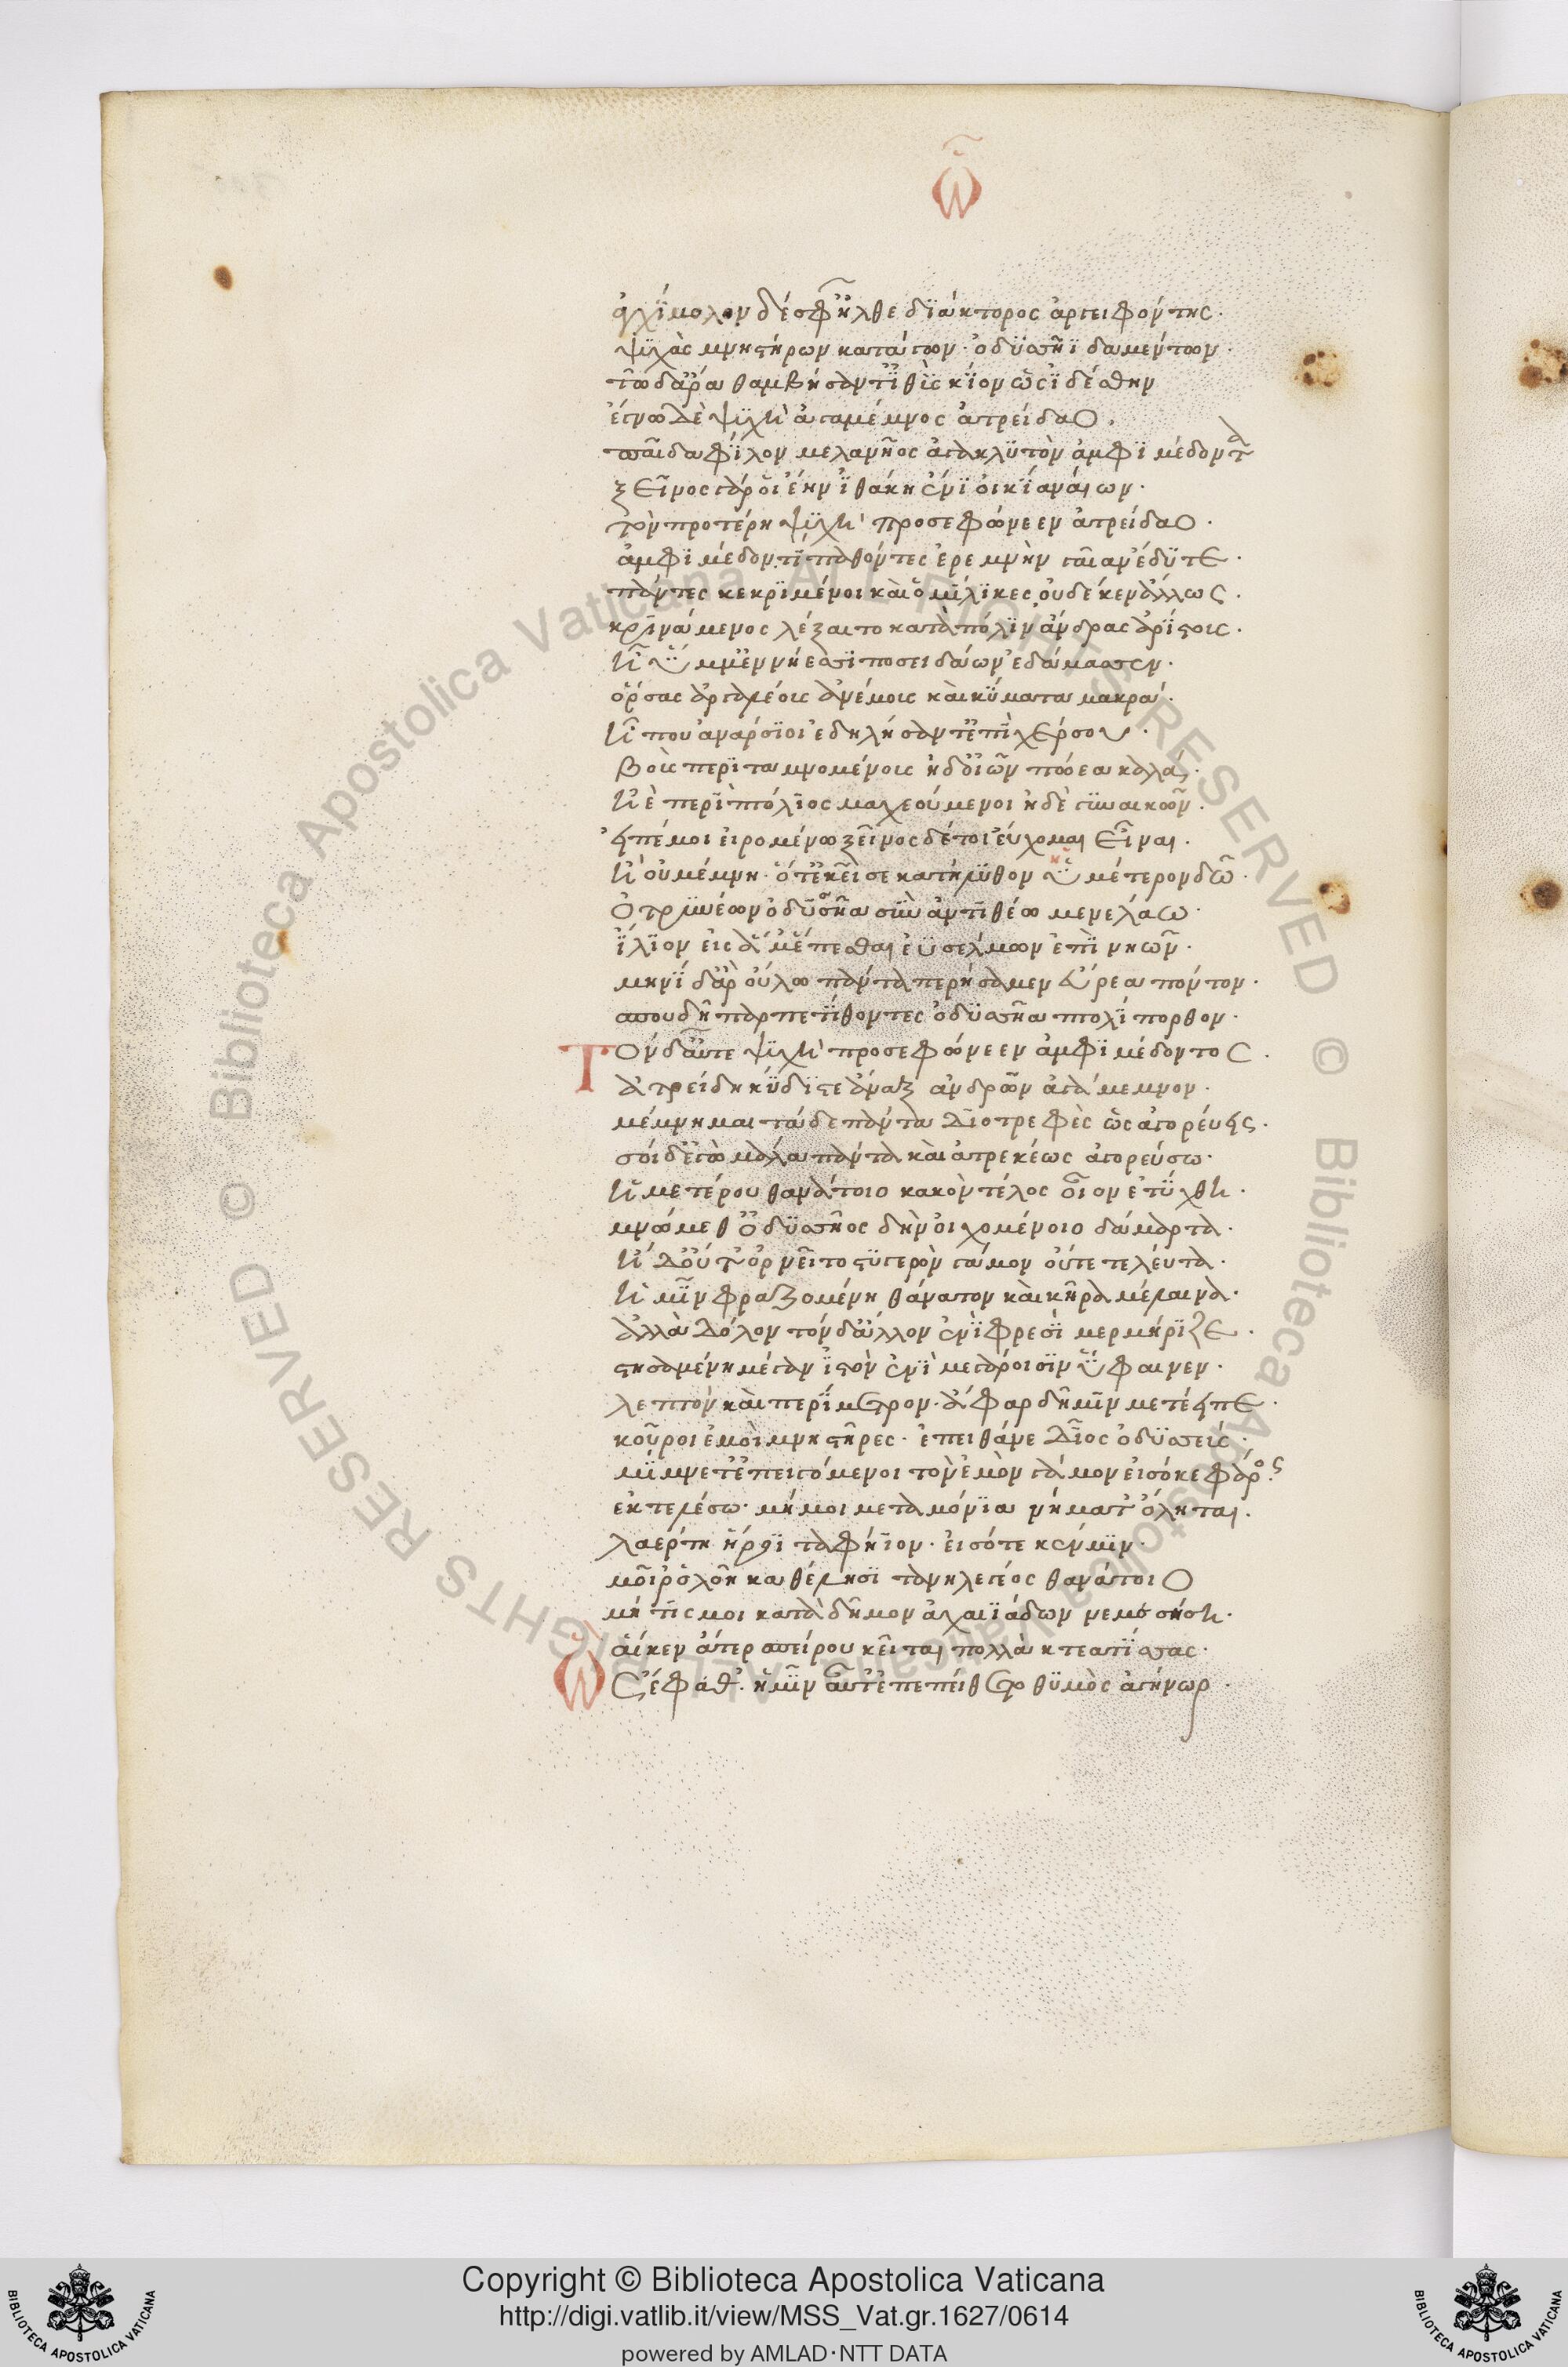 ω
ἀγχίμολον δέ σφ' ἦλθε διάκτορος ἀργειφόντης·
ψυχὰς μνηστήρων κατάγων· ὀδυσῆϊ δαμέντων·
τὼ δ' ἄρα θαμβήσαντ' ἰθὺς κίον ὡς ἰδέσθην
ἔγνω δὲ ψυχὴ ἀγαμέμνος ἀτρείδαο.
παῖδα φίλον μελανῆος ἀγακλυτὸν ἀμφιμέδοντα
ξεῖνος γάρ οἱ ἔην ἰθάκη ἐνὶ οἰκία ναίων·
τὸν προτέρη ψυχὴ προσεφώνεεν ἀτρείδαο·
ἀμφιμέδον τί παθόντες ἐρεμνὴν γαῖαν ἔδυτε·
πάντες κεκριμένοι καὶ ὁμήλικες, οὐδέ κεν ἄλλως·
κρινάμενος λέξαιτο κατὰ πόλιν ἄνδρας ἀρίστοις·
ἢ ὔμμ' ἐν νήεσσι ποσειδάων ἐδάμασσεν·
ὄρσας ἀργαλέοις ἀνέμοις καὶ κύματα μακρά·
ἤ που ἀνάρσιοι ἐδηλήσαντ' ἐπὶ χέρσου·
βοῦς περιταμνομένοις ἠδ' οἰῶν πώεα καλά·
ἠὲ περὶ πτόλιος μαχεούμενοι ἠδὲ γυναικῶν·
εἰπέ μοι εἰρομένω ξεῖνος δέ τοι εὔχομαι εἶναι·
ἢ οὐ μέμνη· ὅτε κεῖσε κατήλυθον ὑμέτερον δῶ·
ὀτρυνέων ὀδυσῆα σὺν ἀντιθέω μενελάω·
ἴλιον εἰς ἅμ' ἕπεσθαι ἐϋσέλμων ἐπὶ νηῶν·
μηνὶ δ' ἄρ' οὔλω πάντα περήσαμεν εὐρέα πόντον·
σπουδῆ παρπεπίθοντες ὀδυσσῆα πτολίπορθον·
Τὸν δ' αὖτε ψυχὴ προσεφώνεεν ἀμφιμέδοντος·
ἀτρείδη κύδιστε ἄναξ ἀνδρῶν ἀγάμεμνον·
μέμνημαι τάδε πάντα διοτρεφὲς ὡς ἀγορεύεις·
σοὶ δ' ἐγὼ μάλα πάντα καὶ ἀτρεκέως ἀγορεύσω·
ἡμετέρου θανάτοιο κακὸν τέλος οἷον ἐτύχθη·
μνώμεθ' ὀδυσσῆος δὴν οἰχομένοιο δάμαρτα·
ἡ δ' οὔτ' ἀρνεῖτο στυγερὸν γάμον οὔτε τελεύτα·
ἡμῖν φραζομένη θάνατον καὶ κῆρα μέλαινα·
ἀλλὰ δόλον τόνδ' ἄλλον ἐνὶ φρεσὶ μερμήριζε·
στησαμένη μέγαν ἱστὸν ἐνὶ μεγάροισιν ὕφαινεν·
λεπτὸν καὶ περίμετρον· ἄφαρ δ' ἡμῖν μετέειπε·
κοῦροι ἐμοὶ μνηστῆρες· ἐπεὶ θάνε δῖος ὀδυσσεύς·
μίμνετ' ἐπειγόμενοι τὸν ἐμὸν γάμον εἰσόκε φάρος·
ἐκτελέσω· μή μοι μεταμώνια νήματ' ὄληται·
λαέρτη ἥρωϊ ταφήιον· εἰσότε κέν μιν·
μοῖρ' ὀλοὴ καθέλησι τανηλεγέος θανάτοιο
μή τίς μοι κατὰ δῆμον ἀχαιϊάδων νεμεσήση·
αἴ κεν ἄτερ σπείρου κεῖται πολλὰ κτεατίσσας·
Ὣς ἔφαθ'· ἡμῖν αὖτ' ἐπεπείθετο θυμὸς ἀγήνωρ·
© Biblioteca Apostolica Vaticana ALL RIGHTS RESERVED © Biblioteca Apostolica Vaticana ALL RIGHTS RESERVED
Copyright © Biblioteca Apostolica Vaticana
http://digi.vatlib.it/view/MSS_Vat.gr.1627/0614
powered by AMLAD·NTT DATA
BIBLIOTECA APOSTOLICA VATICANA
BIBLIOTECA APOSTOLICA VATICANA